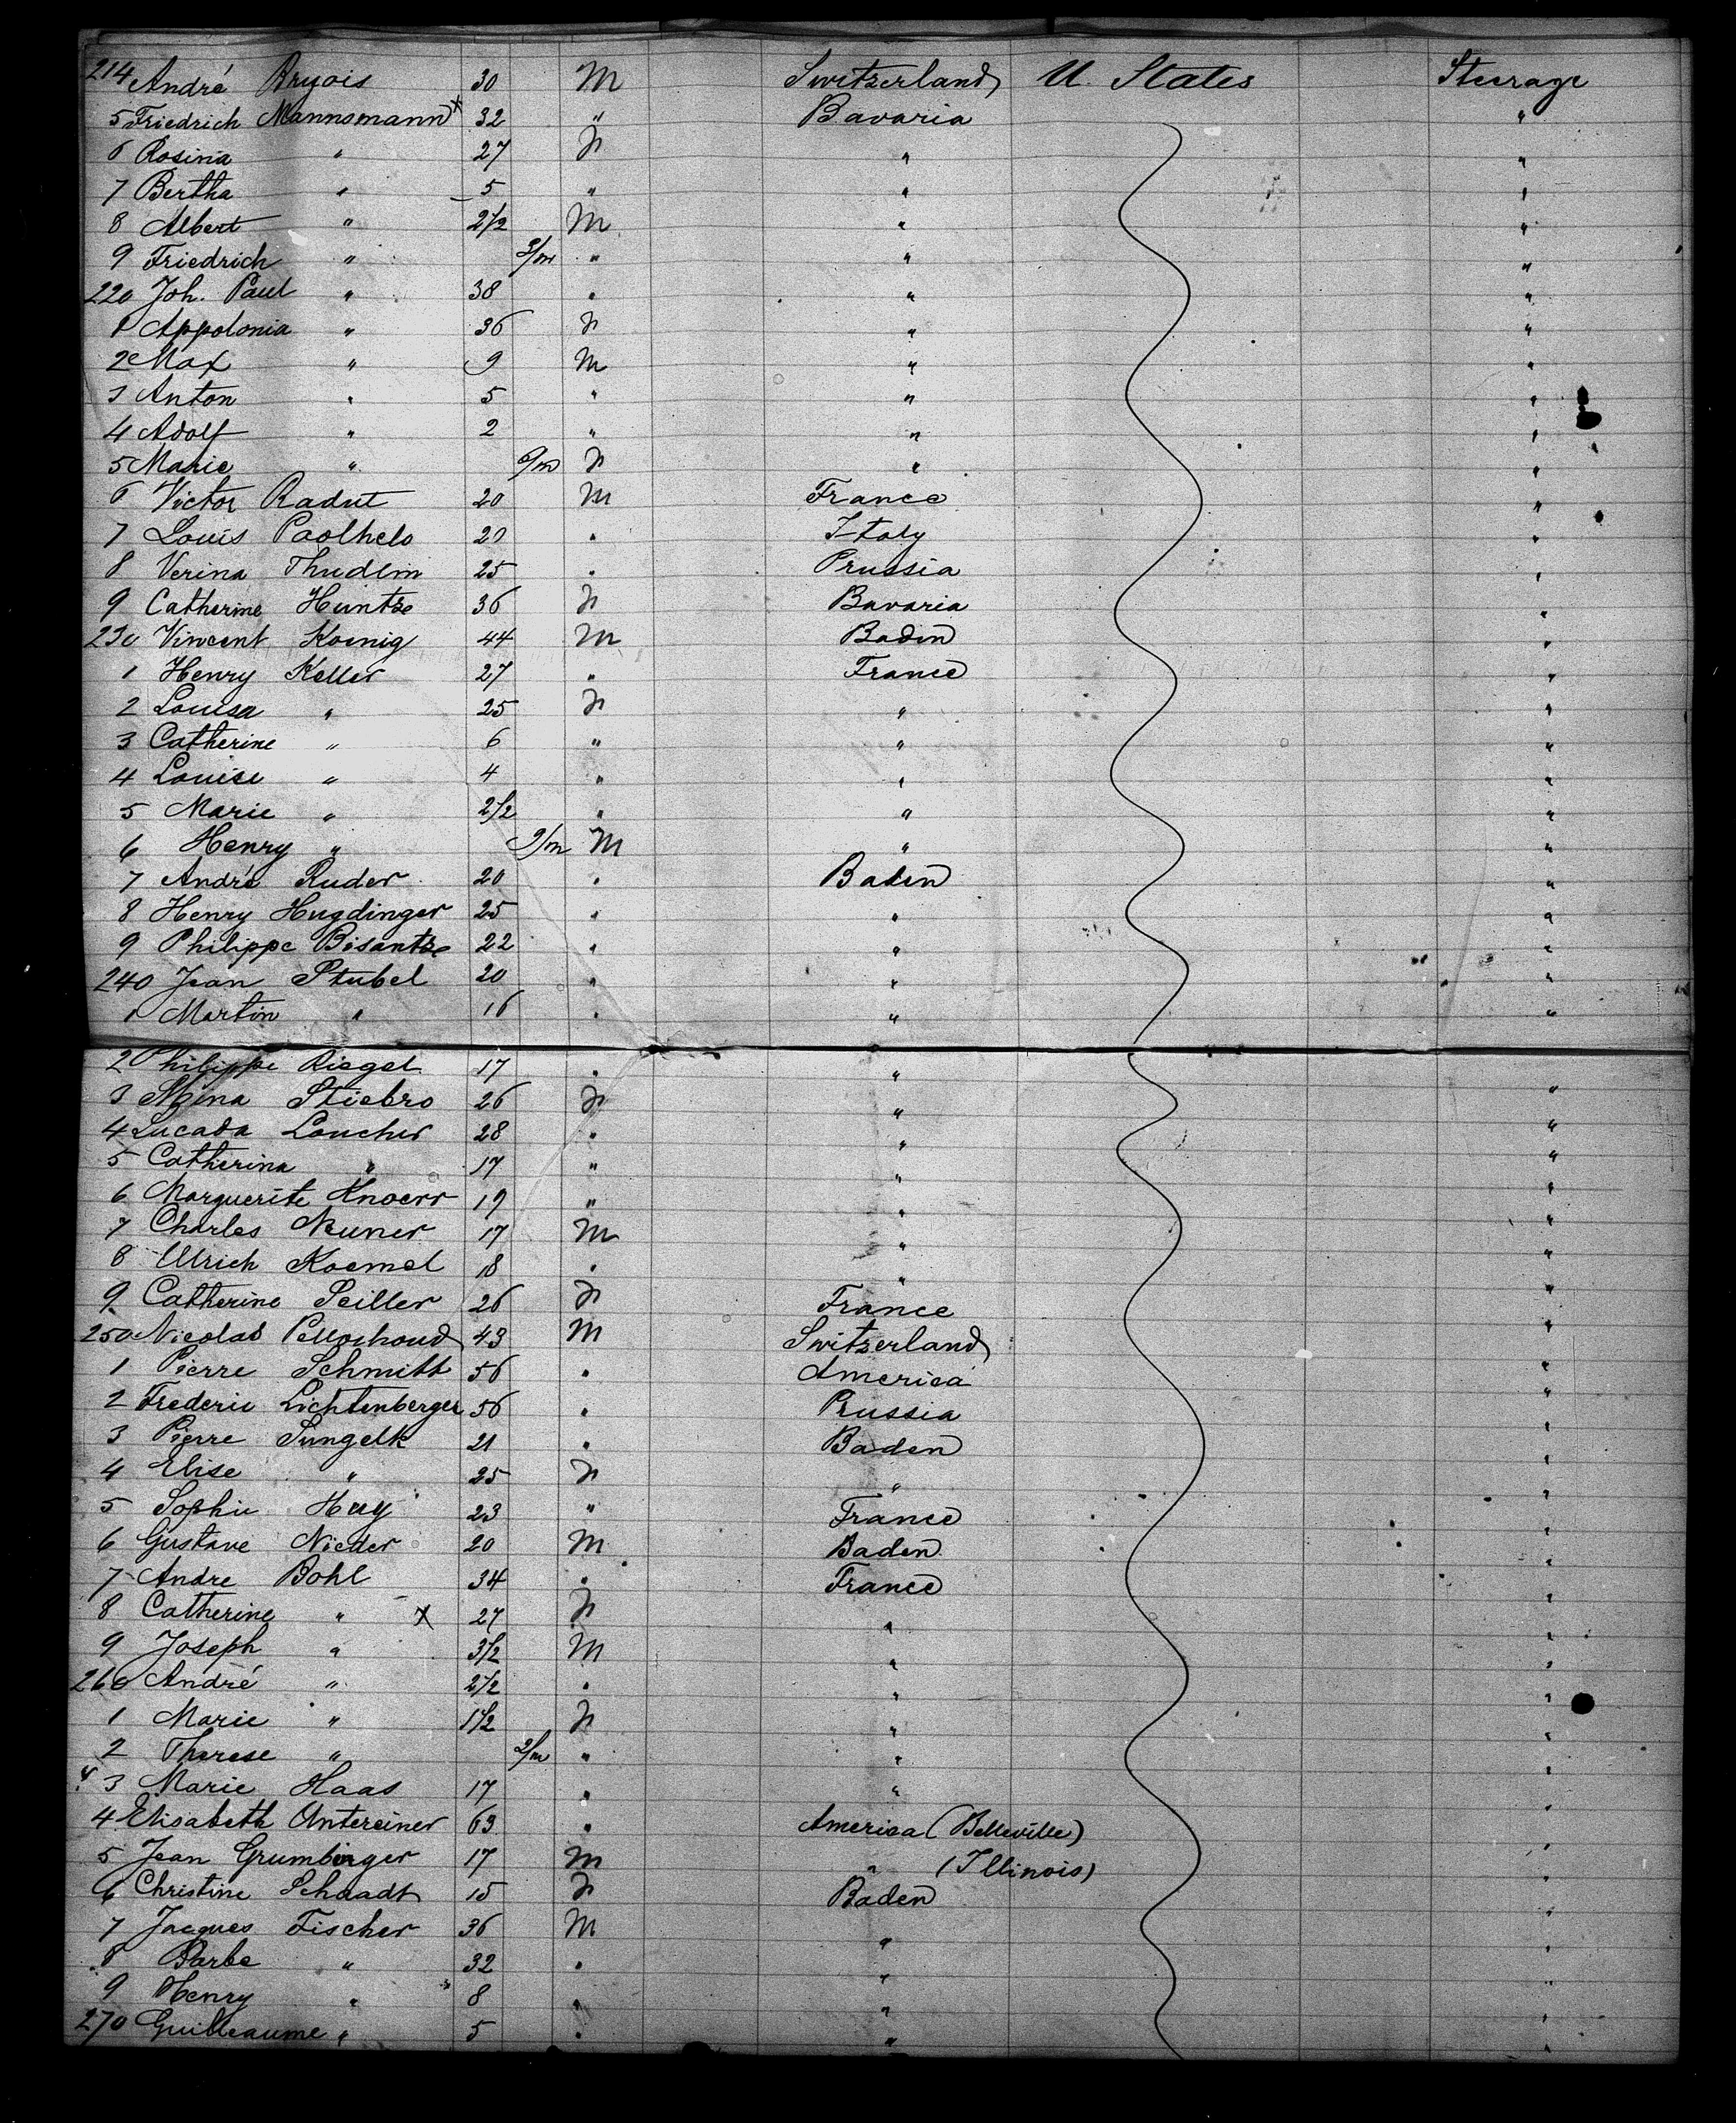 214 André Bryois 30 M Switzerland U. States Steerage
5 Friedrich Mannsmann x 32 " Bavaria "
6 Rosina " 27 F " "
7 Bertha " 5 " " "
8 Albert " 2 1/2 M " "
9 Friedrich " 3/m " " "
220 Joh. Paul " 38 " " "
1 Appolonia " 36 F " "
2 Max " 9 M " "
3 Anton " 5 " " "
4 Adolf " 2 " " "
5 Marie " 9/m F " "
6 Victor Radut 20 M France "
7 Louis Paolhelo 20 " Italy "
8 Verina Thudlin 25 " Prussia "
9 Catherine Huntze 36 F Bavaria "
230 Vincent Koenig 44 M Baden "
1 Henry Keller 27 " France "
2 Louisa " 25 F " "
3 Catherine " 6 " " "
4 Louise " 4 " " "
5 Marie " 2 1/2 " " "
6 Henry " 9/m M " "
7 André Ruder 20 " Baden "
8 Henry Hugdinger 25 " " "
9 Philippe Bisantze 22 " " "
240 Jean Stubel 20 " " "
1 Martin " 16 " " "
2 Philippe Riegel 17 " " "
3 Mina Stiebro 26 F " "
4 Lucada Loucher 28 " " "
5 Catherina " 17 " " "
6 Marguerite Knoerr 19 " " "
7 Charles Neuner 17 M " "
8 Ulrich Koemel 18 " " "
9 Catherine Seiller 26 F France "
250 Nicolas Pellochoud 43 M Switzerland "
1 Pierre Schmitt 56 " America "
2 Frederic Lichtenberger 56 " Prussia "
3 Pierre Sungelk 21 " Baden "
4 Elise " 25 F " "
5 Sophie Huy 23 " France "
6 Gustave Nieder 20 M Baden "
7 Andre Bohl 34 " France "
8 Catherine " x 27 F " "
9 Joseph " 3 1/2 M " "
260 André " 2 1/2 " " "
1 Marie " 1 1/2 F " "
2 Therese " 2/m " " "
3 Marie Haas 17 " " "
4 Elisabeth Untereiner 63 " America (Belleville) "
5 Jean Grumberger 17 M " (Illinois) "
6 Christine Schaadt 15 F Baden "
7 Jacques Fischer 36 M " "
8 Barbe " 32 " " "
9 Henry " 8 " " "
270 Guilleaume " 5 " " "